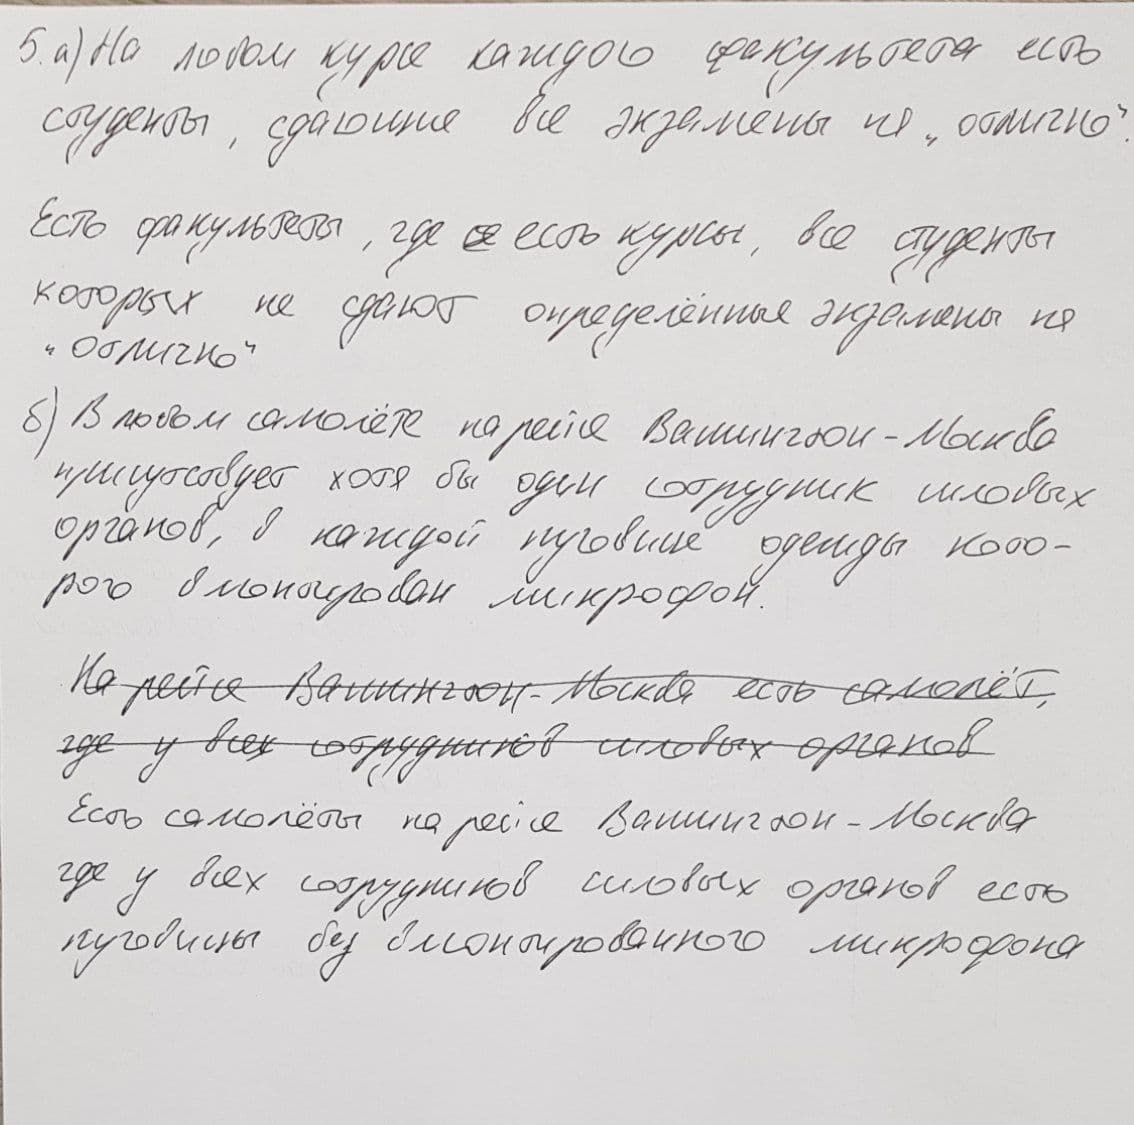 5. а) На любом курсе каждого факультета есть
студенты, сдающие все экзамены на „отлично”.
Есть факультеты, где есть курсы, все студенты
которых не сдают определённые экзамены на
"отлично"
б) В любом самолёте на рейсе Вашингтон - Москва
присутствует хотя бы один сотрудник силовых
органов, в каждой пуговице одежды кото-
рого вмонтирован микрофон.
На рейсе Вашингтон - Москва есть самолёт,
где у всех сотрудников силовых органов
Есть самолёты на рейсе Вашингтон - Москва
где у всех сотрудников силовых органов есть
пуговицы без вмонтированного микрофона